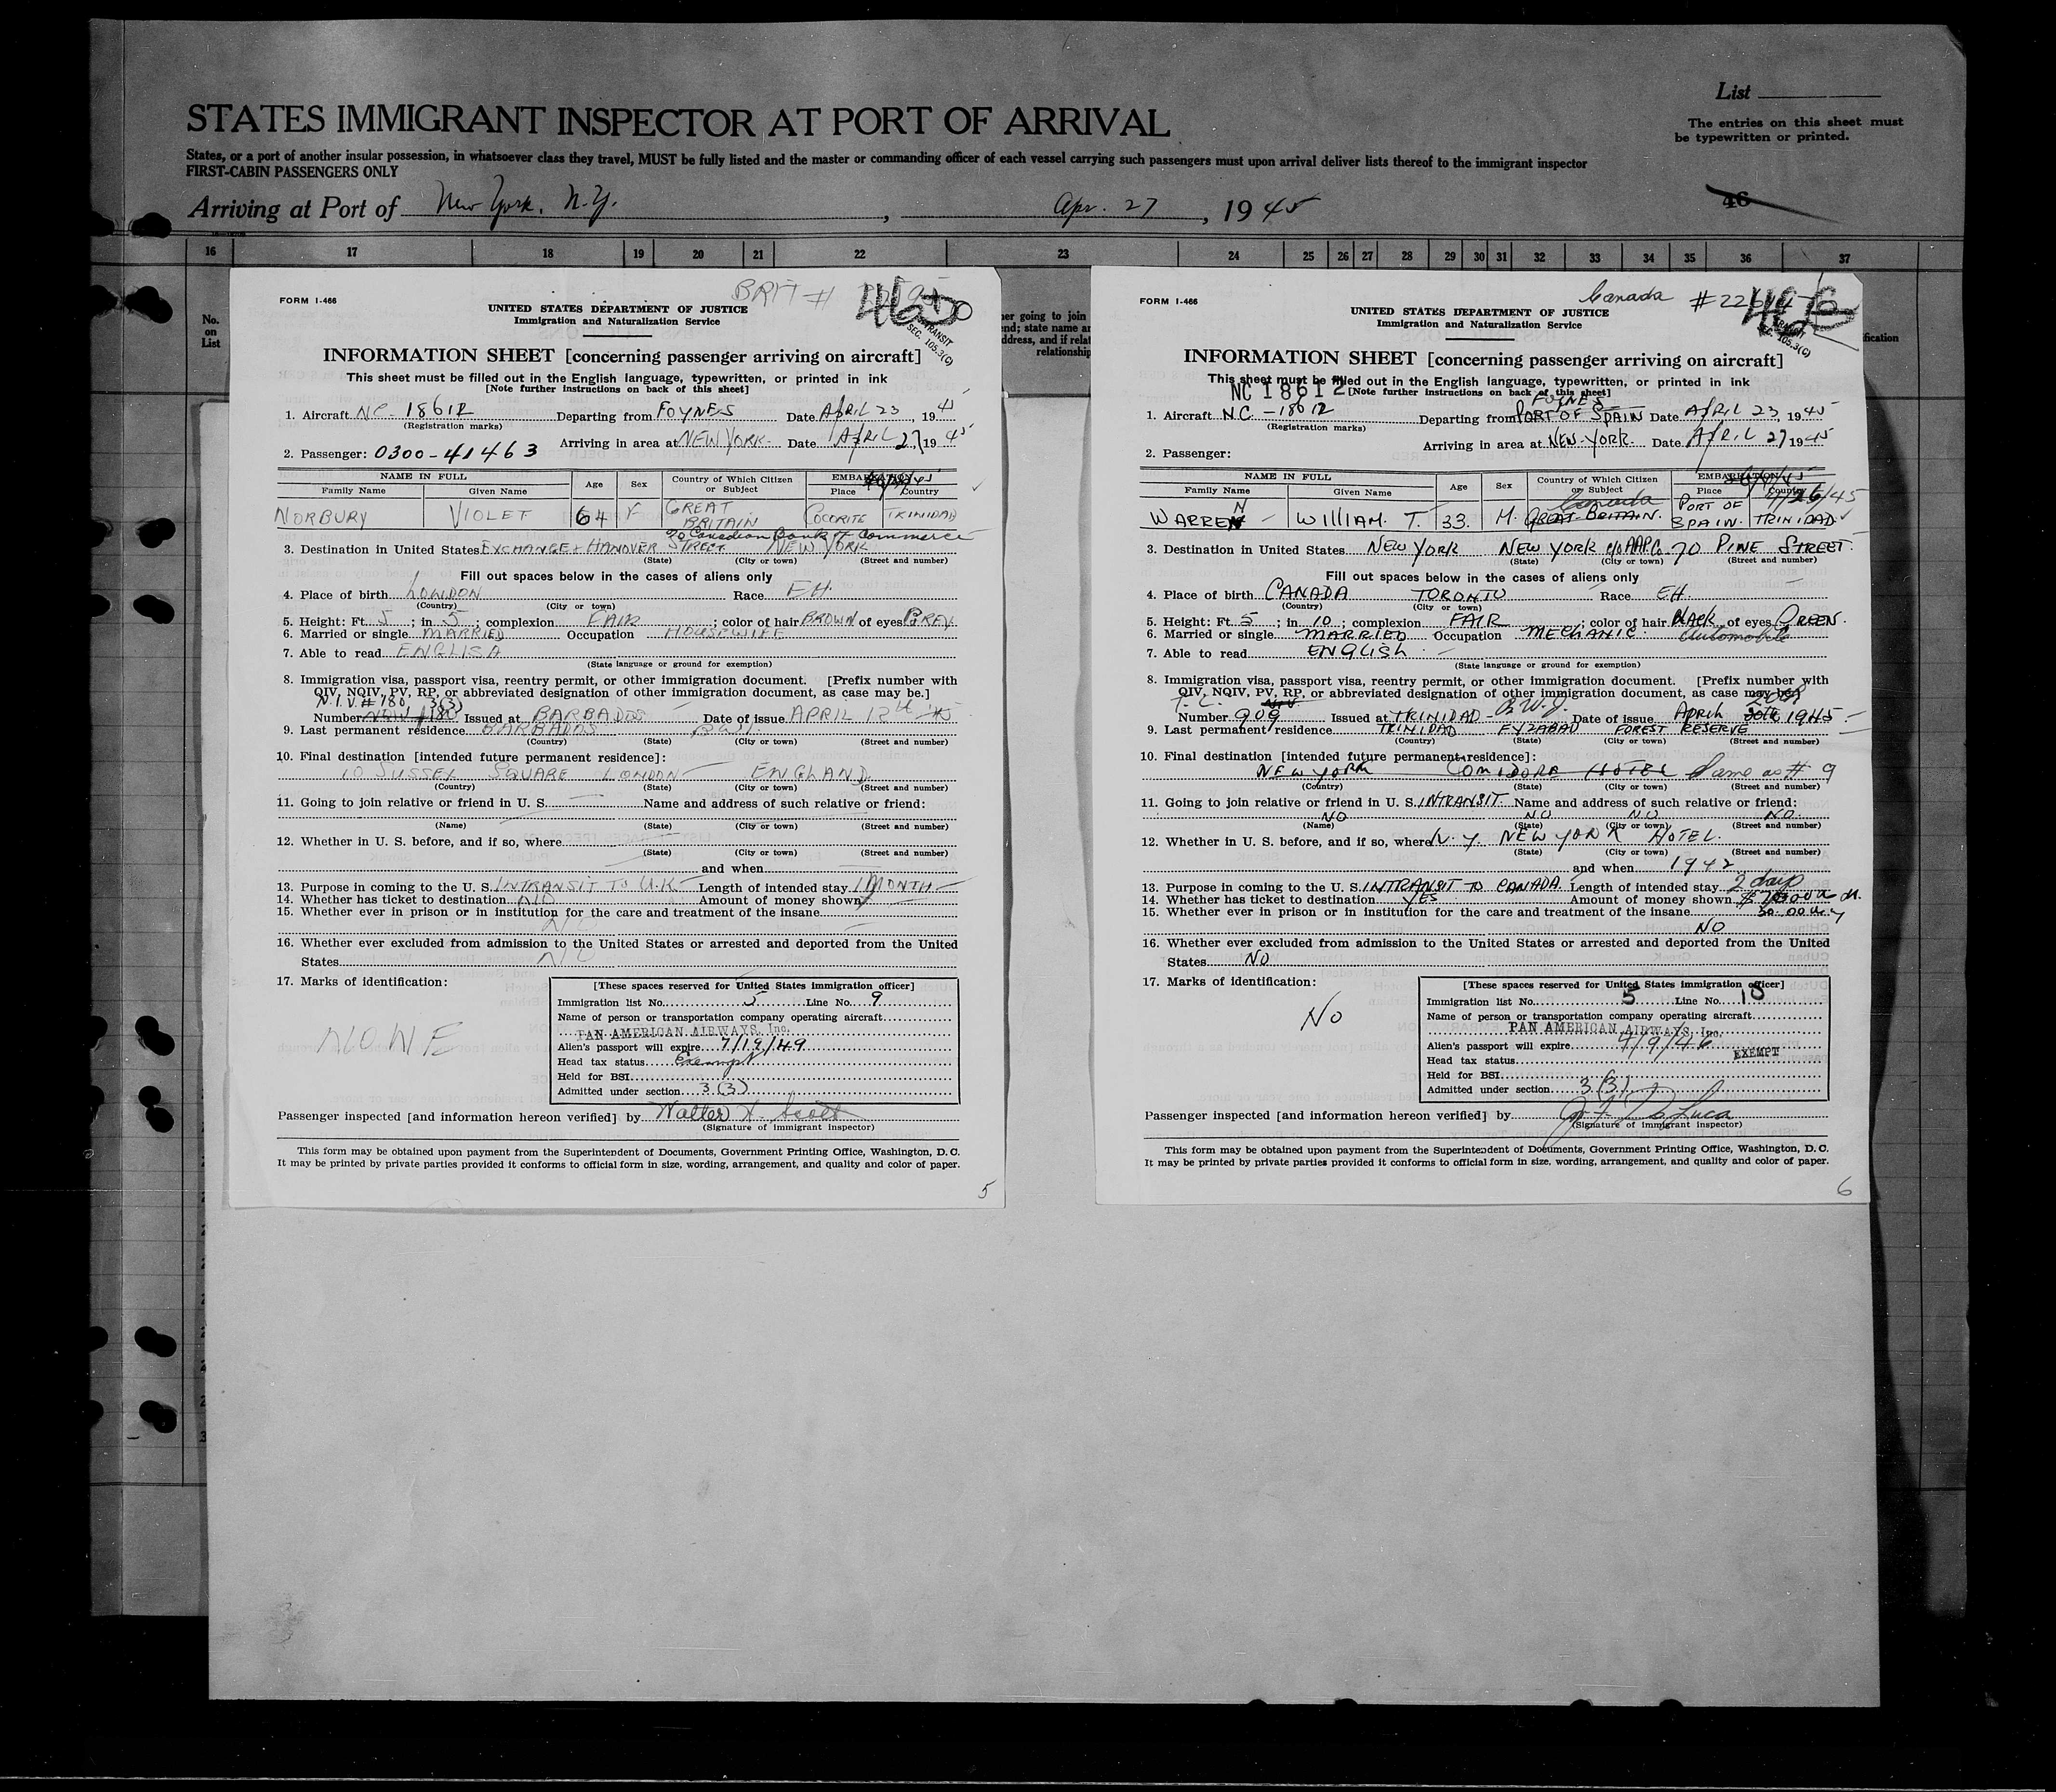 List
The entries on this sheet must
be typewritten or printed.
STATES IMMIGRANT INSPECTOR AT PORT OF ARRIVAL
States, or a port of another insular possession, in whatsoever class they travel, MUST be fully listed and the master or commanding officer of each vessel carrying such passengers must upon arrival deliver lists thereof to the immigrant inspector
FIRST-CABIN PASSENGERS ONLY
Arriving at Port of New York, N.Y., Apr. 27, 1945
46
16 17 18 19 20 21 22 23 24 25 26 27 28 29 30 31 32 33 34 35 36 37
No.
on
List
BRIT #
FORM I-466
UNITED STATES DEPARTMENT OF JUSTICE
Immigration and Naturalization Service
TRANSIT
SEC. 105.3(C)
INFORMATION SHEET [concerning passenger arriving on aircraft]
This sheet must be filled out in the English language, typewritten, or printed in ink
[Note further instructions on back of this sheet]
1. Aircraft NC-18612 Departing from FOYNES Date APRIL 23, 1945
(Registration marks)
Arriving in area at NEW YORK Date APRIL 27, 1945
2. Passenger: 0300-41463
NAME IN FULL Age Sex Country of Which Citizen or Subject EMBARKATION
Family Name Given Name Place Country
NORBURY VIOLET 64 F GREAT BRITAIN COCORITE TRINIDAD
c/o Canadian Bank of Commerce
3. Destination in United States EXCHANGE & HANOVER STREET NEW YORK
(State) (City or town) (Street and number)
Fill out spaces below in the cases of aliens only
4. Place of birth LONDON Race EH.
(Country) (City or town)
5. Height: Ft. 5; in 5; complexion FAIR; color of hair BROWN of eyes GREY
6. Married or single MARRIED Occupation HOUSEWIFE
7. Able to read ENGLISH
(State language or ground for exemption)
8. Immigration visa, passport visa, reentry permit, or other immigration document. [Prefix number with
QIV, NQIV, PV, RP, or abbreviated designation of other immigration document, as case may be.]
N.I.V. #180 3(3)
Number Issued at BARBADOS Date of issue APRIL 12th 45
9. Last permanent residence BARBADOS B.W.I.
(Country) (State) (City or town) (Street and number)
10. Final destination [intended future permanent residence]:
10 SUSSEX SQUARE LONDON ENGLAND
(Country) (State) (City or town) (Street and number)
11. Going to join relative or friend in U. S. Name and address of such relative or friend:
(Name) (State) (City or town) (Street and number)
12. Whether in U. S. before, and if so, where
(State) (City or town) (Street and number)
and when
13. Purpose in coming to the U. S. INTRANSIT TO U.K. Length of intended stay 1 MONTH
14. Whether has ticket to destination NO Amount of money shown
15. Whether ever in prison or in institution for the care and treatment of the insane
NO
16. Whether ever excluded from admission to the United States or arrested and deported from the United
States NO
17. Marks of identification:
NONE
[These spaces reserved for United States immigration officer]
Immigration list No. 5 Line No. 9
Name of person or transportation company operating aircraft
PAN AMERICAN AIRWAYS, Inc.
Alien's passport will expire 7/19/49
Head tax status Exempt
Held for BSI
Admitted under section 3(3)
Passenger inspected [and information hereon verified] by Walter H. Scott
(Signature of immigrant inspector)
This form may be obtained upon payment from the Superintendent of Documents, Government Printing Office, Washington, D. C.
It may be printed by private parties provided it conforms to official form in size, wording, arrangement, and quality and color of paper.
5
Canada
FORM I-466
UNITED STATES DEPARTMENT OF JUSTICE
Immigration and Naturalization Service
TRANSIT
SEC. 105.3(C)
INFORMATION SHEET [concerning passenger arriving on aircraft]
This sheet must be filled out in the English language, typewritten, or printed in ink
NC 18612 [Note further instructions on back of this sheet]
FOYNES
1. Aircraft NC-18612 Departing from PORT OF SPAIN Date APRIL 23, 1945
(Registration marks)
Arriving in area at NEW-YORK Date APRIL 27 1945
2. Passenger:
NAME IN FULL Age Sex Country of Which Citizen or Subject EMBARKATION
Family Name Given Name Place Country
4/26/45
WARREN WILLIAM. T. 33. M. Canada GREAT BRITAIN. PORT OF SPAIN. TRINIDAD
3. Destination in United States NEW YORK NEW YORK c/o AAP.Co 70 PINE STREET.
(State) (City or town) (Street and number)
Fill out spaces below in the cases of aliens only
4. Place of birth CANADA TORONTO Race EH.
(Country) (City or town)
5. Height: Ft. 5; in 10; complexion FAIR; color of hair BLACK of eyes GREEN.
6. Married or single MARRIED Occupation MECHANIC. Automobile
7. Able to read ENGLISH
(State language or ground for exemption)
8. Immigration visa, passport visa, reentry permit, or other immigration document. [Prefix number with
QIV, NQIV, PV, RP, or abbreviated designation of other immigration document, as case may be.]
T.C. 20th
Number 909 Issued at TRINIDAD - B.W.I. Date of issue April 1945
9. Last permanent residence TRINIDAD FYZABAD FOREST RESERVE
(Country) (State) (City or town) (Street and number)
10. Final destination [intended future permanent residence]:
NEW YORK COMIDORE HOTEL Same as # 9
(Country) (State) (City or town) (Street and number)
11. Going to join relative or friend in U. S. INTRANSIT. Name and address of such relative or friend:
NO NO NO NO.
(Name) (State) (City or town) (Street and number)
12. Whether in U. S. before, and if so, where N.Y. NEW YORK HOTEL.
(State) (City or town) (Street and number)
and when 1942
13. Purpose in coming to the U. S. INTRANSIT TO CANADA. Length of intended stay 2 days
14. Whether has ticket to destination YES Amount of money shown
15. Whether ever in prison or in institution for the care and treatment of the insane
NO
16. Whether ever excluded from admission to the United States or arrested and deported from the United
States NO
17. Marks of identification:
No
[These spaces reserved for United States immigration officer]
Immigration list No. 5 Line No. 10
Name of person or transportation company operating aircraft
PAN AMERICAN AIRWAYS, Inc.
Alien's passport will expire 4/9/46
Head tax status EXEMPT
Held for BSI
Admitted under section 3(3)
Passenger inspected [and information hereon verified] by
(Signature of immigrant inspector)
This form may be obtained upon payment from the Superintendent of Documents, Government Printing Office, Washington, D. C.
It may be printed by private parties provided it conforms to official form in size, wording, arrangement, and quality and color of paper.
6